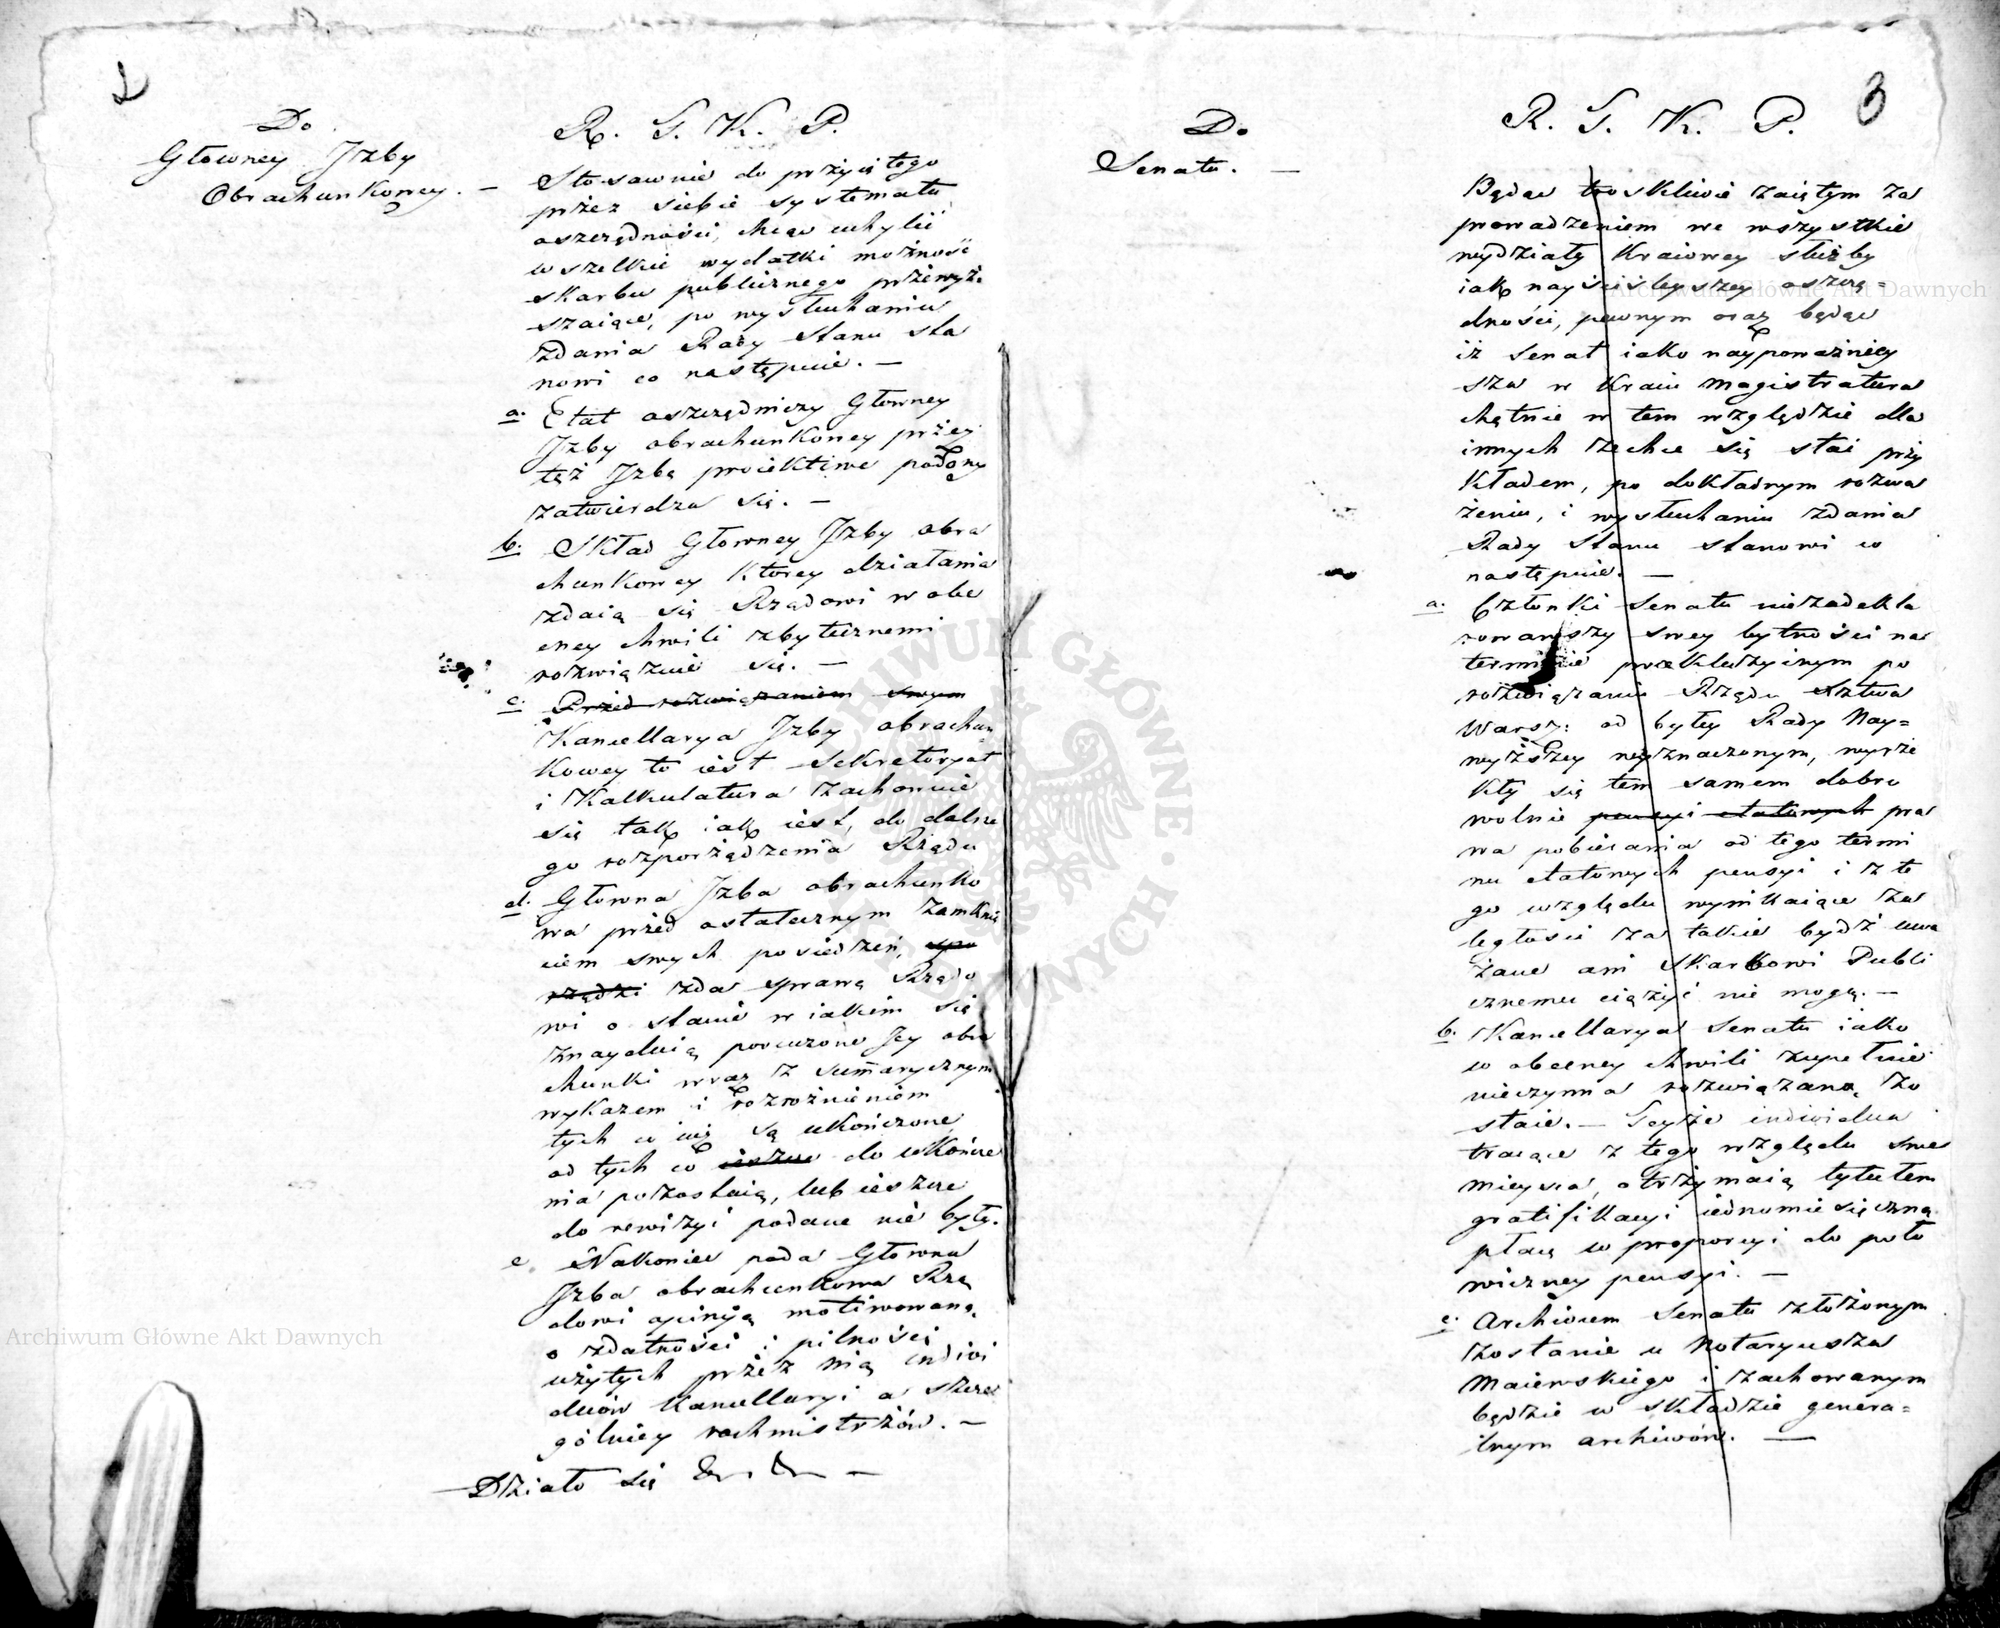 Do
Główney Jzby
Obrachunkowey. —
R. T. K. P.
Stosownie do przyiętego
przez siebie systematu
oszczędności, chcąc uchylić
wszelkie wydatki możność
skarbu publicznego przewyż-
szaiące, po wysłuchaniu
zdania Rady Stanu sta
nowi co następuie. —
a. Etat oszczędniczy Główney
Jzby obrachunkowey przez
też Jzbę proiektiwe podany
zatwierdza się. —
b. Skład Główney Jzby obra
chunkowey Ktorey działania
zdaią się Rządowi w obe
cney chwili zbytecznemi
rozwiązuie się. —
c. Przed rozwiązaniem swym
Kancellarya Jzby obrachun
kowey to iest Sekretaryat
i Kalkulatura zachowuie
się tak iak iest, do dalsze
go rozporządzenia Rządu
d. Główna Jzba obrachunko
wa przed ostatecznym zamknię
ciem swych posiedzeń, spo
rządzi zda sprawę Rządo
wi o stanie w iakim się
znayduią poruczone Jey obra
chunki wraz z sumarycznym
wykazem i rozróżnieniem
tych co iuż są ukończone
od tych co ieszcze do ukończe
nia pozostaią, lub ieszcze
do rewizyi podane nie były.
e. Nakoniec poda Główna
Jzba obrachunkowa Rzą
dowi opiniją motiwowaną,
o zdatności i pilności
użytych przez nią indiwi
duów Kancellaryi a szcze
gólniey rachmistrzów. —
Działo się —
3
Do
Senatu. —
R. T. K. P.
Będąc troskliwie zaiętym za
prowadzeniem we wszystkie
wydziały Kraiowey służby
iak nayściśleyszey oszczę=
dności, pewnym oraz będąc
iż Senat iako naypoważniey
sza w Kraiu Magistratura
chętnie w tem względzie dla
innych zechce się stać przy
kładem, po dokładnym rozwa
żeniu, i wysłuchaniu zdania
Rady Stanu stanowi co
następuie. —
a. Członki Senatu niezadekla
rowawszy swey bytności na
terminie prekluzyinym po
rozwiązaniu Rządu Xstwa
Warsz: od byłey Rady Nay=
wyższey wyznaczonym, wyrze
kły się tem samem dobro
wolnie pensyi etatowych pra
wa pobierania od tego termi
nu etatowych pensyi i z te
go względu wynikaiące za
ległości za takie bydź uwa
żane ani Skarbowi Publi
cznemu ciążyć nie mogą. —
b. Kancellarya Senatu iako
w obecney chwili zupełnie
nieczynna rozwiązaną zo
staie. — Teyże indiwidua
tracące z tego względu swe
mieysca, otrzymaią tytułem
gratifikacyi iednomiesięczną
płacę w proporcyi do poło
wiczney pensyi. —
c. Archiwum Senatu złożonym
zostanie u Notaryusza
Maiewskiego i zachowanym
będzie w składzie genera=
lnym archiwów. —
Archiwum Główne Akt Dawnych
Archiwum Główne Akt Dawnych
ARCHIWUM GŁÓWNE AKT DAWNYCH